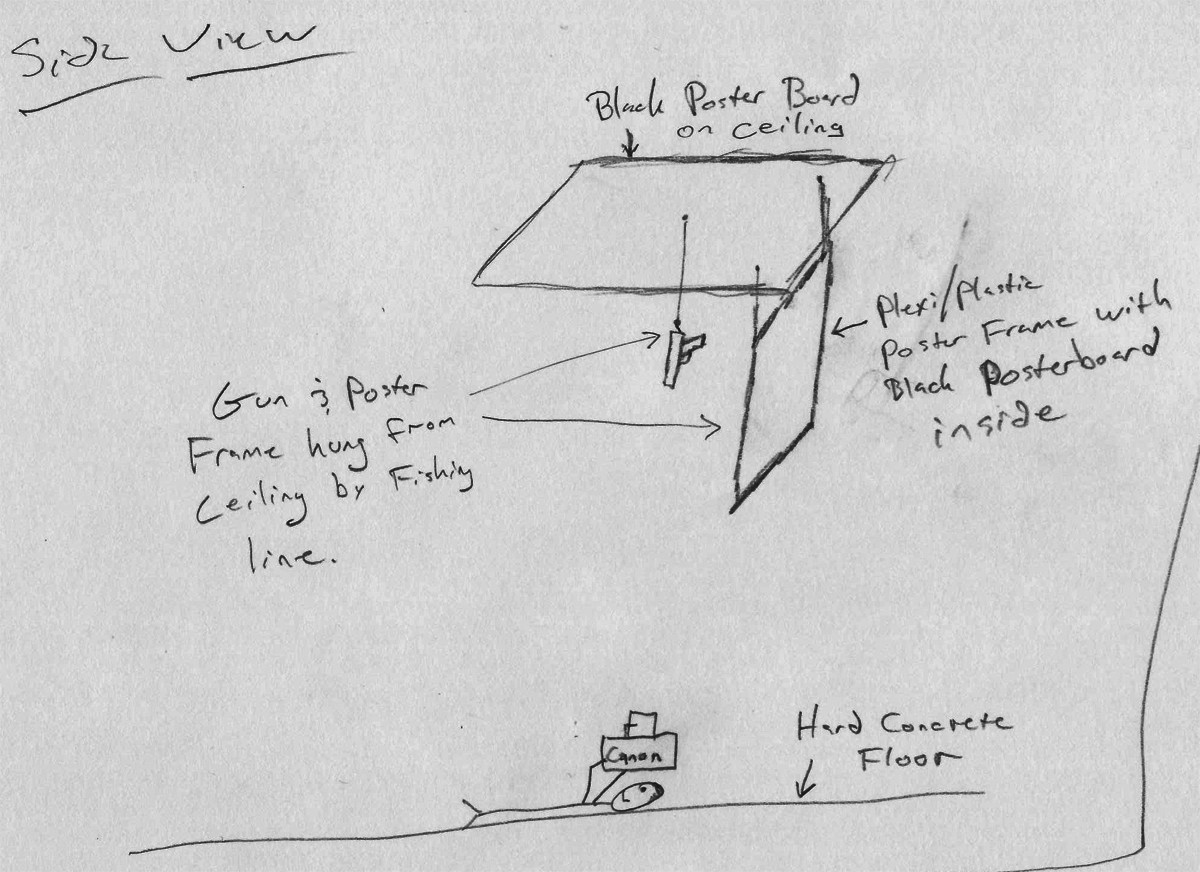 Side View
Black Poster Board
on ceiling
Plexi/Plastic
Poster Frame with
Black Posterboard
inside
Gun & Poster
Frame hung from
Ceiling by Fishing
line.
Canon
Hard Concrete
Floor